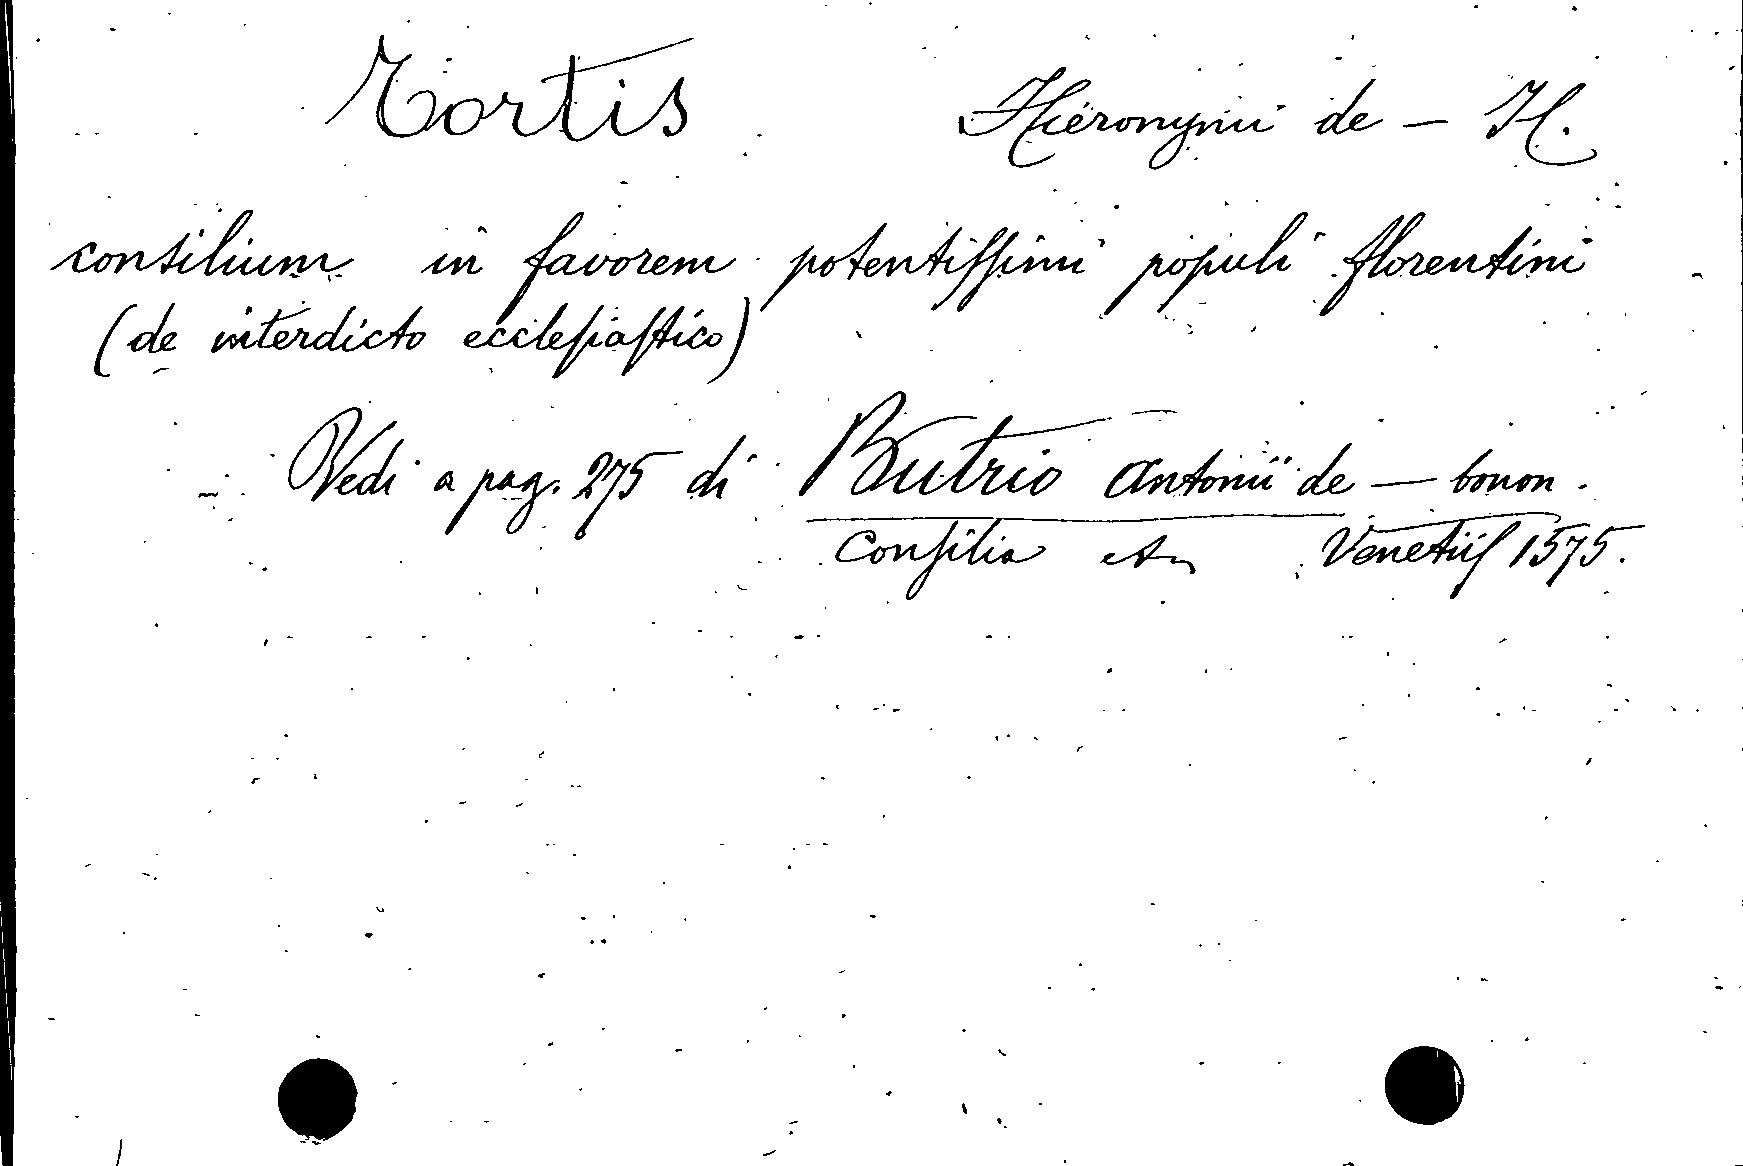 Tortis Hieronymi de — H.
consilium in favorem potentiſſimi populi florentini
(de interdicto eccleſiaſtico)
Vedi a pag. 275 di Butrio Antonii de — bonon.
Conſilia etc Venetiiſ 1575.